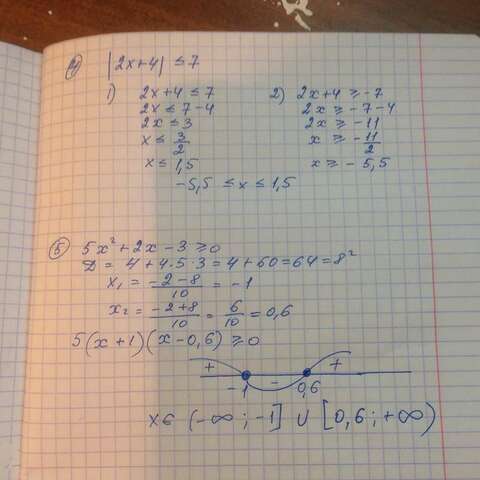 ④ |2x+4| ≤ 7
1) 2x+4 ≤ 7
2x ≤ 7-4
2x ≤ 3
x ≤ 3/2
x ≤ 1,5
2) 2x+4 ≥ -7
2x ≥ -7-4
2x ≥ -11
x ≥ -11/2
x ≥ -5,5
-5,5 ≤ x ≤ 1,5
⑤ 5x²+2x-3 ≥ 0
D = 4+4·5·3 = 4+60 = 64 = 8²
x₁ = -2-8/10 = -1
x₂ = -2+8/10 = 6/10 = 0,6
5(x+1)(x-0,6) ≥ 0
+ - +
-1 0,6
x∈ (-∞; -1] ∪ [0,6; +∞)